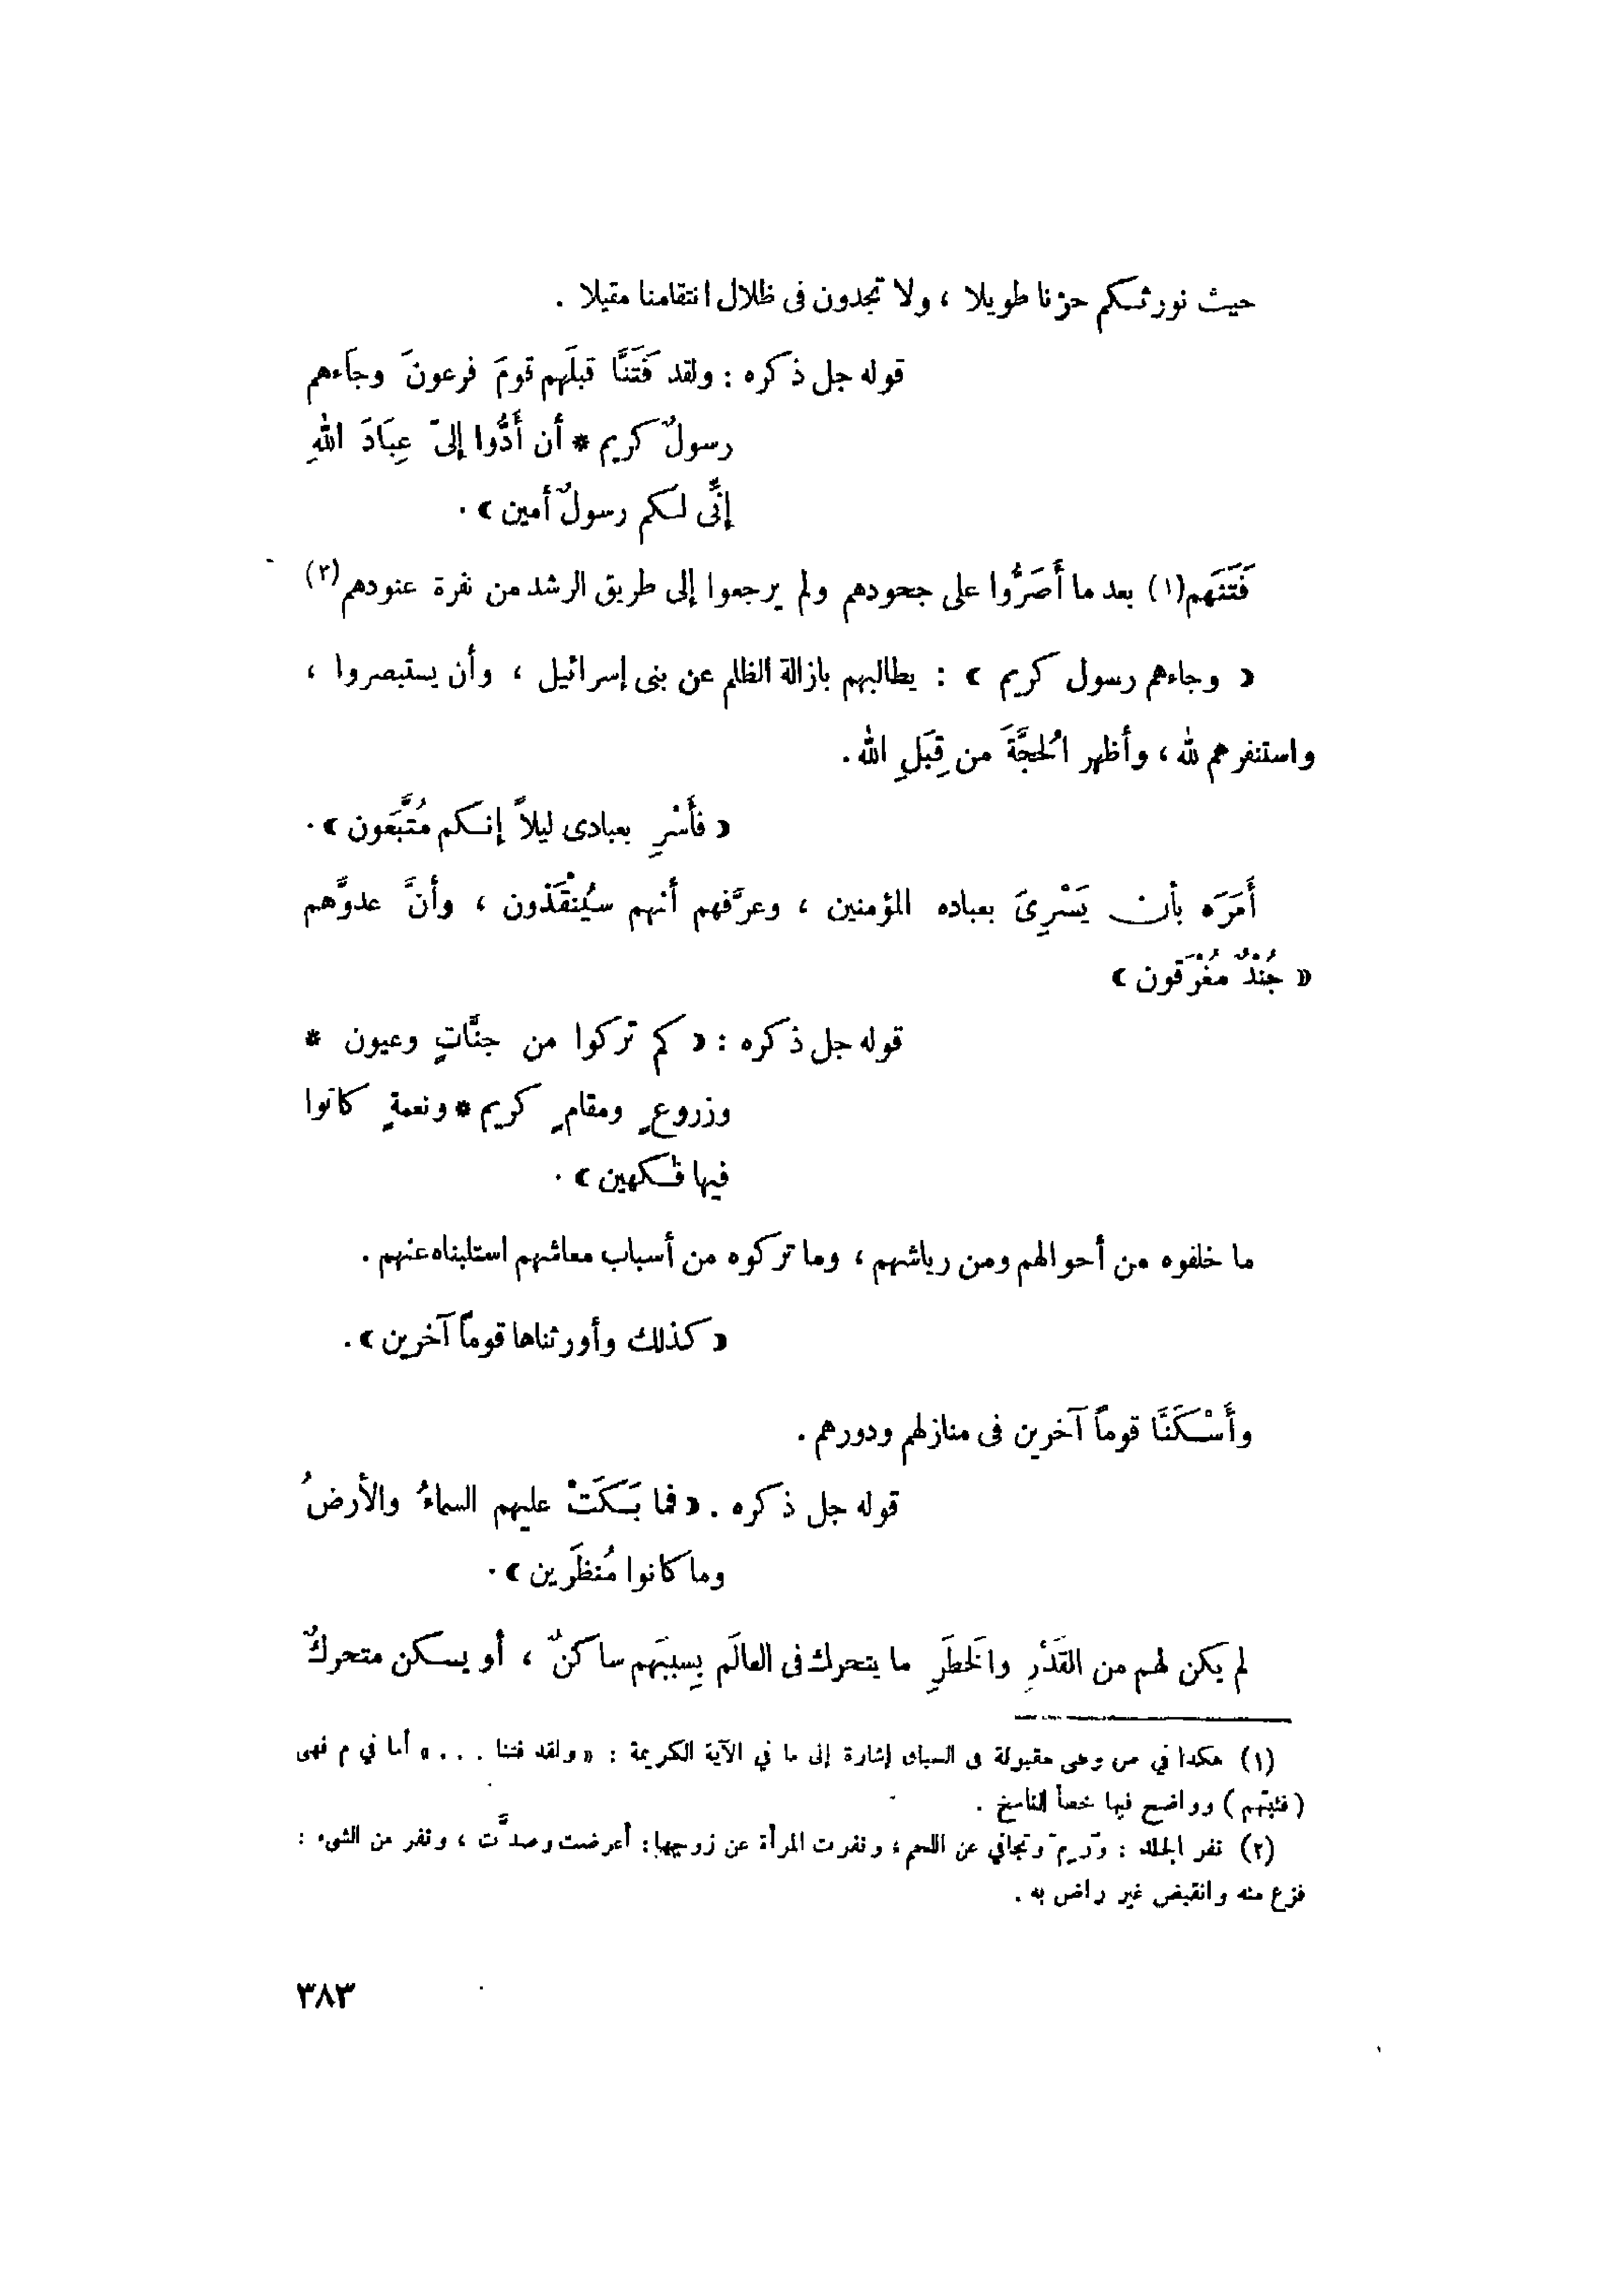 حيث نورثكم حزنا طويلا ، ولا تجدون فى ظلال انتقامنا مقيلا .
قوله جل ذكره : ولقد فَتَنَّا قبلَهم قومَ فرعونَ وجَاءهم
رسولٌ كريم * أن أَدُّوا إلىّ عِبَادَ اللهِ
إنِّى لكم رسولٌ أمين » .
فَتَنَهم(١) بعد ما أَصَرُّوا على جحودهم ولم يرجعوا إلى طريق الرشد من نفرة عنودهم(٢)
« وجاءهم رسول كريم » : يطالبهم بازالة الظلم عن بنى إسرائيل ، وأن يستبصروا ،
واستنفرهم لله ، وأظهر الُحجَّةَ من قِبَلِ الله .
« فأَسْرِ بعبادى ليلاً إنكم مُتَّبَعون » .
أَمَرَه بأن يَسْرِىَ بعباده المؤمنين ، وعرَّفهم أنهم سيُنْقَذون ، وأنَّ عدوَّهم
« جُنْدٌ مُغْرَقون »
قوله جل ذكره : « كم تركوا من جنَّاتٍ وعيون *
وزروعٍ ومقامٍ كريم * ونعمةٍ كانوا
فيها فكهين » .
ما خلفوه من أحوالهم ومن رياشهم ، وما تركوه من أسباب معاشهم استلبناه عنهم .
« كذلك وأورثناها قوماً آخرين » .
وأَسْكَنَّا قوماً آخرين فى منازلهم ودورهم .
قوله جل ذكره . « فما بَكَتْ عليهم السماءُ والأرضُ
وما كانوا مُنظَرين » .
لم يكن لهم من القَدْرِ والَخطَرِ ما يتحرك فى العالَم بِسببَهم ساكنٌ ، أو يسكن متحركٌ
(١) هكذا في ص وهى مقبولة فى السياق إشارة إلى ما في الآية الكريمة : « ولقد فتنا . . . » أما في م فهى
( فئبتهم ) وواضح فيها خطأ الناسخ .
(٢) نفر الجلد : وَرِمَ وتجافي عن اللحم ، ونفرت المرأة عن زوجها : أعرضت وصدَّت ، ونفر من الشىء :
فزع منه وانقبض غير راض به .
٣٨٣